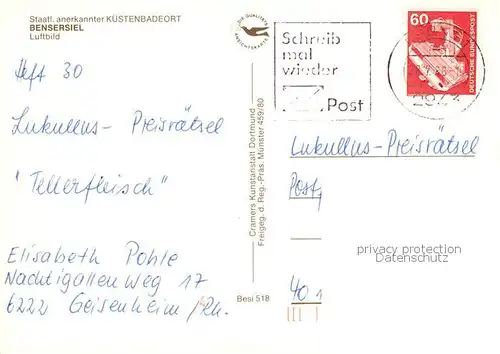 Staatl. anerkannter KÜSTENBADEORT
BENSERSIEL
Luftbild
Heft 30
Lukullus- Preisrätsel
"Tellerfleisch"
Elisabeth Pohle
Nachtigallenweg 17
6222 Geisenheim/Rh.
Cramers Kunstanstalt Dortmund
Freigeg. d. Reg.-Präs. Münster 459/80
Besi 518
Schreib
mal
wieder
Post
60
DEUTSCHE BUNDESPOST
Lukullus-Preisrätsel
Post
privacy protection
Datenschutz